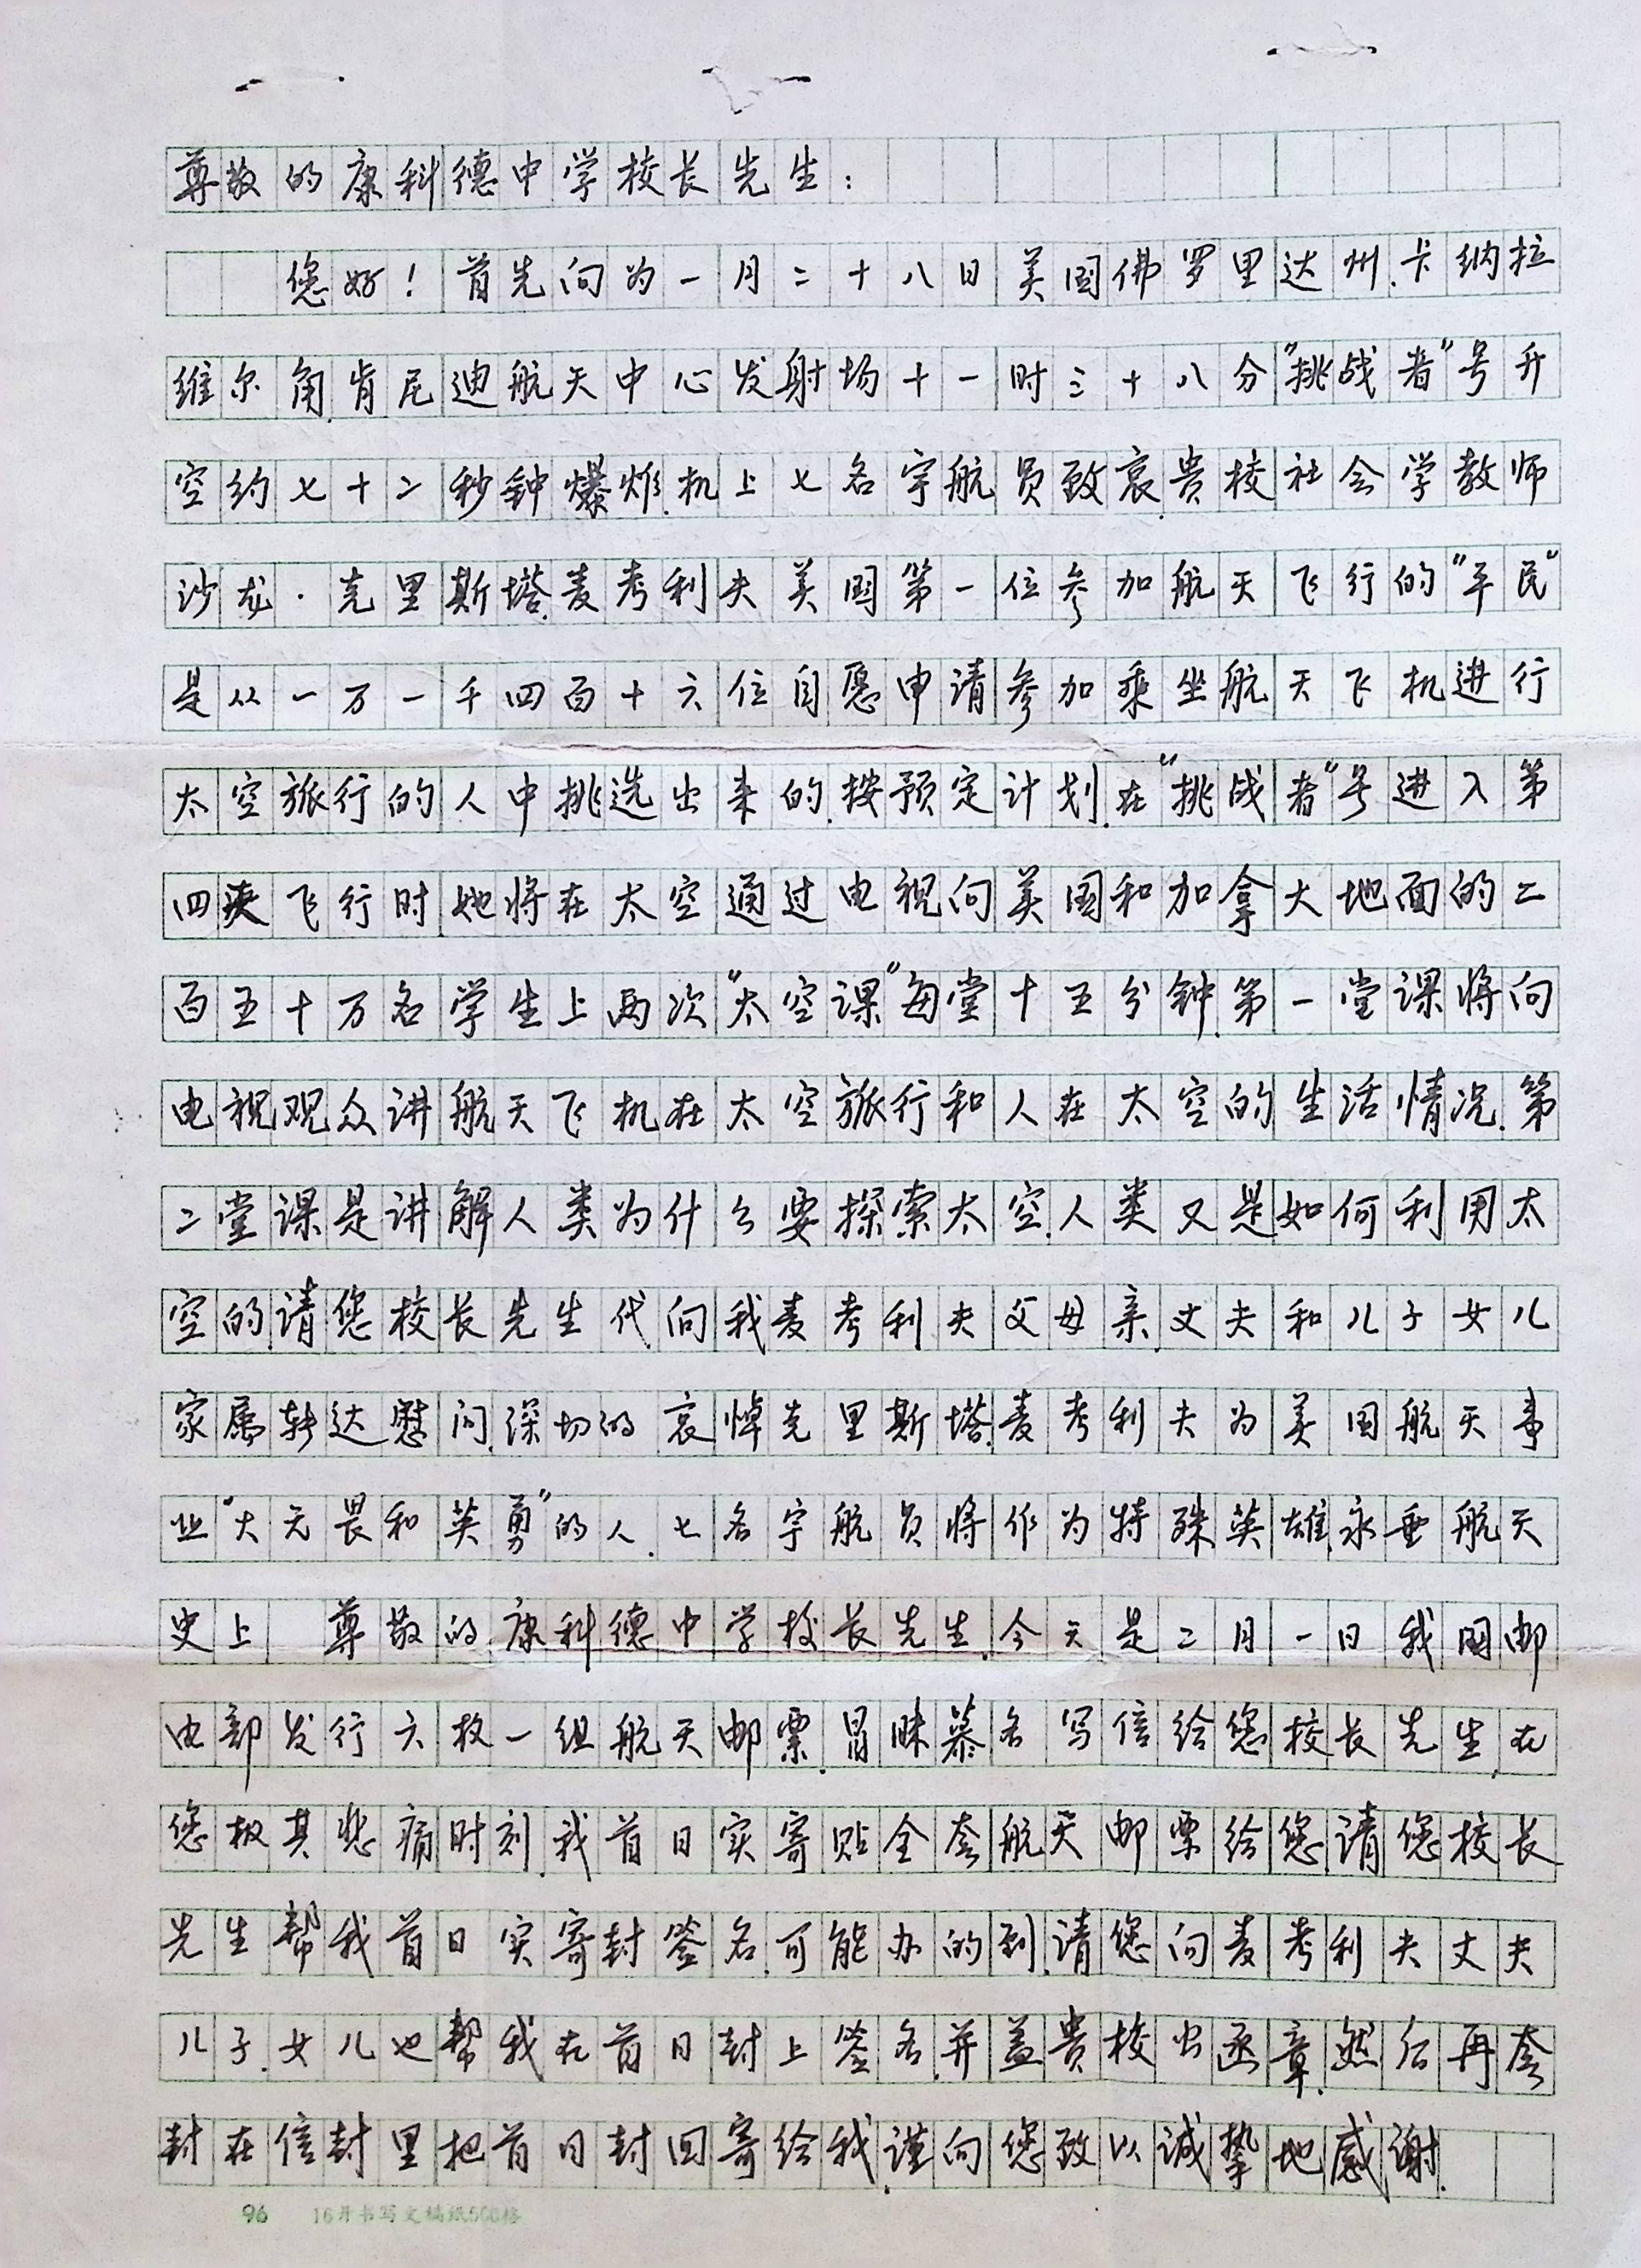 尊敬的康科德中学校长先生：
您好！首先向为一月二十八日美国佛罗里达州.卡纳拉
维尔角.肯尼迪航天中心发射场十一时三十八分“挑战者”号升
空约七十二秒钟爆炸.机上七名宇航员致哀.贵校社会学教师
沙龙·克里斯塔.麦考利夫美国第一位参加航天飞行的“平民”
是从一万一千四百十六位自愿申请参加乘坐航天飞机进行
太空旅行的人中挑选出来的.按预定计划.在“挑战者”号进入第
四天飞行时她将在太空通过电视向美国和加拿大地面的二
百五十万名学生上两次“太空课”每堂十五分钟.第一堂课将向
电视观众讲航天飞机在太空旅行和人在太空的生活情况.第
二堂课是讲解人类为什么要探索太空.人类又是如何利用太
空的.请您校长先生代向我麦考利夫父母亲.丈夫和儿子女儿
家属转达慰问.深切的哀悼克里斯塔.麦考利夫为美国航天事
业“大无畏和英勇”的人.七名宇航员将作为特殊英雄.永垂航天
史上 尊敬的康科德中学校长先生.今天是二月一日我国邮
电部发行六枚一组航天邮票.冒昧慕名写信给您校长先生.在
您极其悲痛时刻.我首日实寄贴全套航天邮票给您.请您校长
先生帮我首日实寄封签名.可能办的到.请您向麦考利夫丈夫
儿子.女儿也帮我在首日封上签名.并盖贵校出函章.然后再套
封在信封里把首日封回寄给我.谨向您致以诚挚地感谢.
96 16开书写文稿纸500格